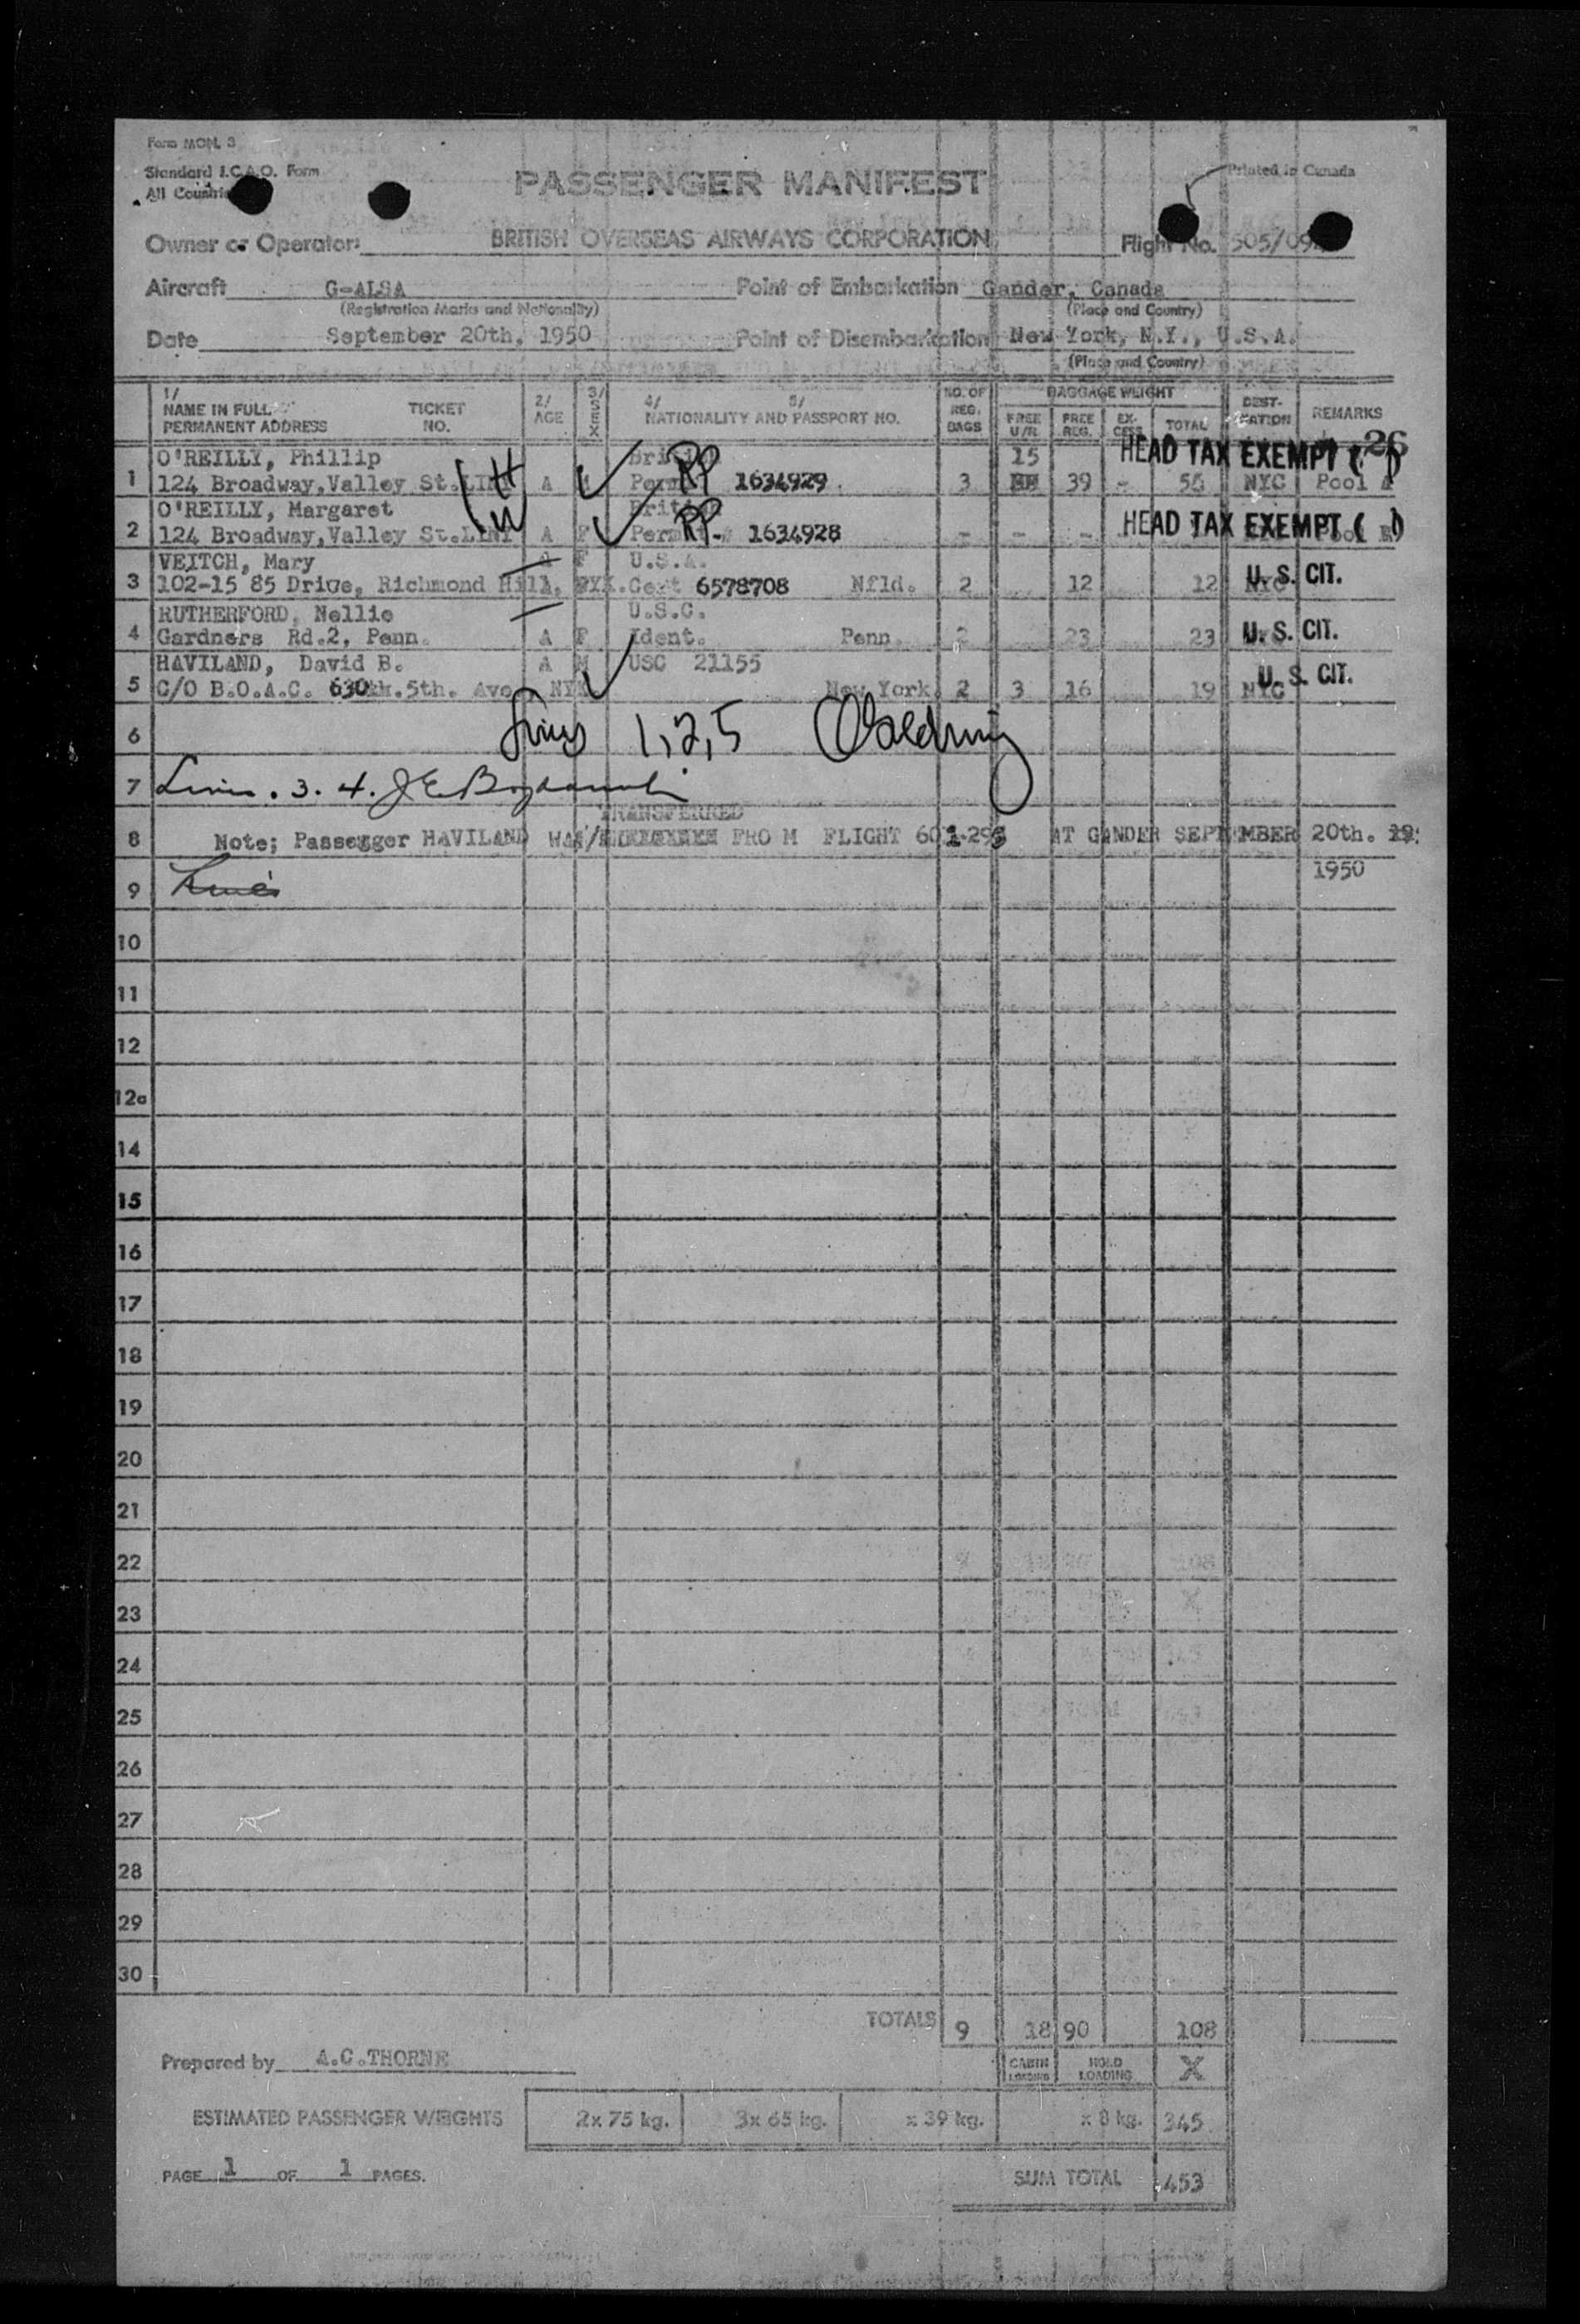 Form MON. 3
Standard I.C.A.O. Form
All Countries
Printed in Canada
PASSENGER MANIFEST
Owner or Operator: BRITISH OVERSEAS AIRWAYS CORPORATION Flight No. 505/09
Aircraft G-ALSA Point of Embarkation Gander, Canada
(Registration Marks and Nationality) (Place and Country)
Date September 20th, 1950 Point of Disembarkation New York, N.Y., U.S.A.
(Place and Country)
1/ NAME IN FULL PERMANENT ADDRESS TICKET NO. 2/ AGE 3/ SEX 4/ 5/ NATIONALITY AND PASSPORT NO. NO. OF REG. BAGS BAGGAGE WEIGHT FREE U/R. FREE REG. EX-CESS TOTAL DEST-INATION REMARKS
26
O'REILLY, Phillip H British 15 HEAD TAX EXEMPT ( )
1 124 Broadway, Valley St. LINY A M Permit RP 1634929 3 39 - 54 NYC Pool A
O'REILLY, Margaret W British
2 124 Broadway, Valley St. LINY A F Permit RP # 1634928 - - - HEAD TAX EXEMPT ( )
VEITCH, Mary A F U.S.A.
3 102-15 85 Drive, Richmond Hill, NYK. Cert 6578708 Nfld. 2 12 12 NYC U.S. CIT.
RUTHERFORD, Nellie U.S.C.
4 Gardners Rd.2, Penn. A F Ident. Penn. 2 23 23 U.S. CIT.
HAVILAND, David B. A M USC 21155
5 C/O B.O.A.C. 630 5th. Ave NYK New York 2 3 16 19 NYC U.S. CIT.
6 Lines 1,2,5
7 Lines. 3. 4. J E
TRANSFERRED
8 Note; Passegger HAVILAND WAS/ FRO M FLIGHT AT GANDER SEPTEMBER 20th. 19
1950
9 Lines
10
11
12
12a
14
15
16
17
18
19
20
21
22
23
24
25
26
27
28
29
30
TOTALS 9 18 90 108
Prepared by A.C.THORNE CABIN LOADING HOLD LOADING X
ESTIMATED PASSENGER WEIGHTS 2x 75 kg. 3x 65 kg. x 39 kg. x 8 kg. 345
PAGE 1 OF 1 PAGES.
SUM TOTAL 453